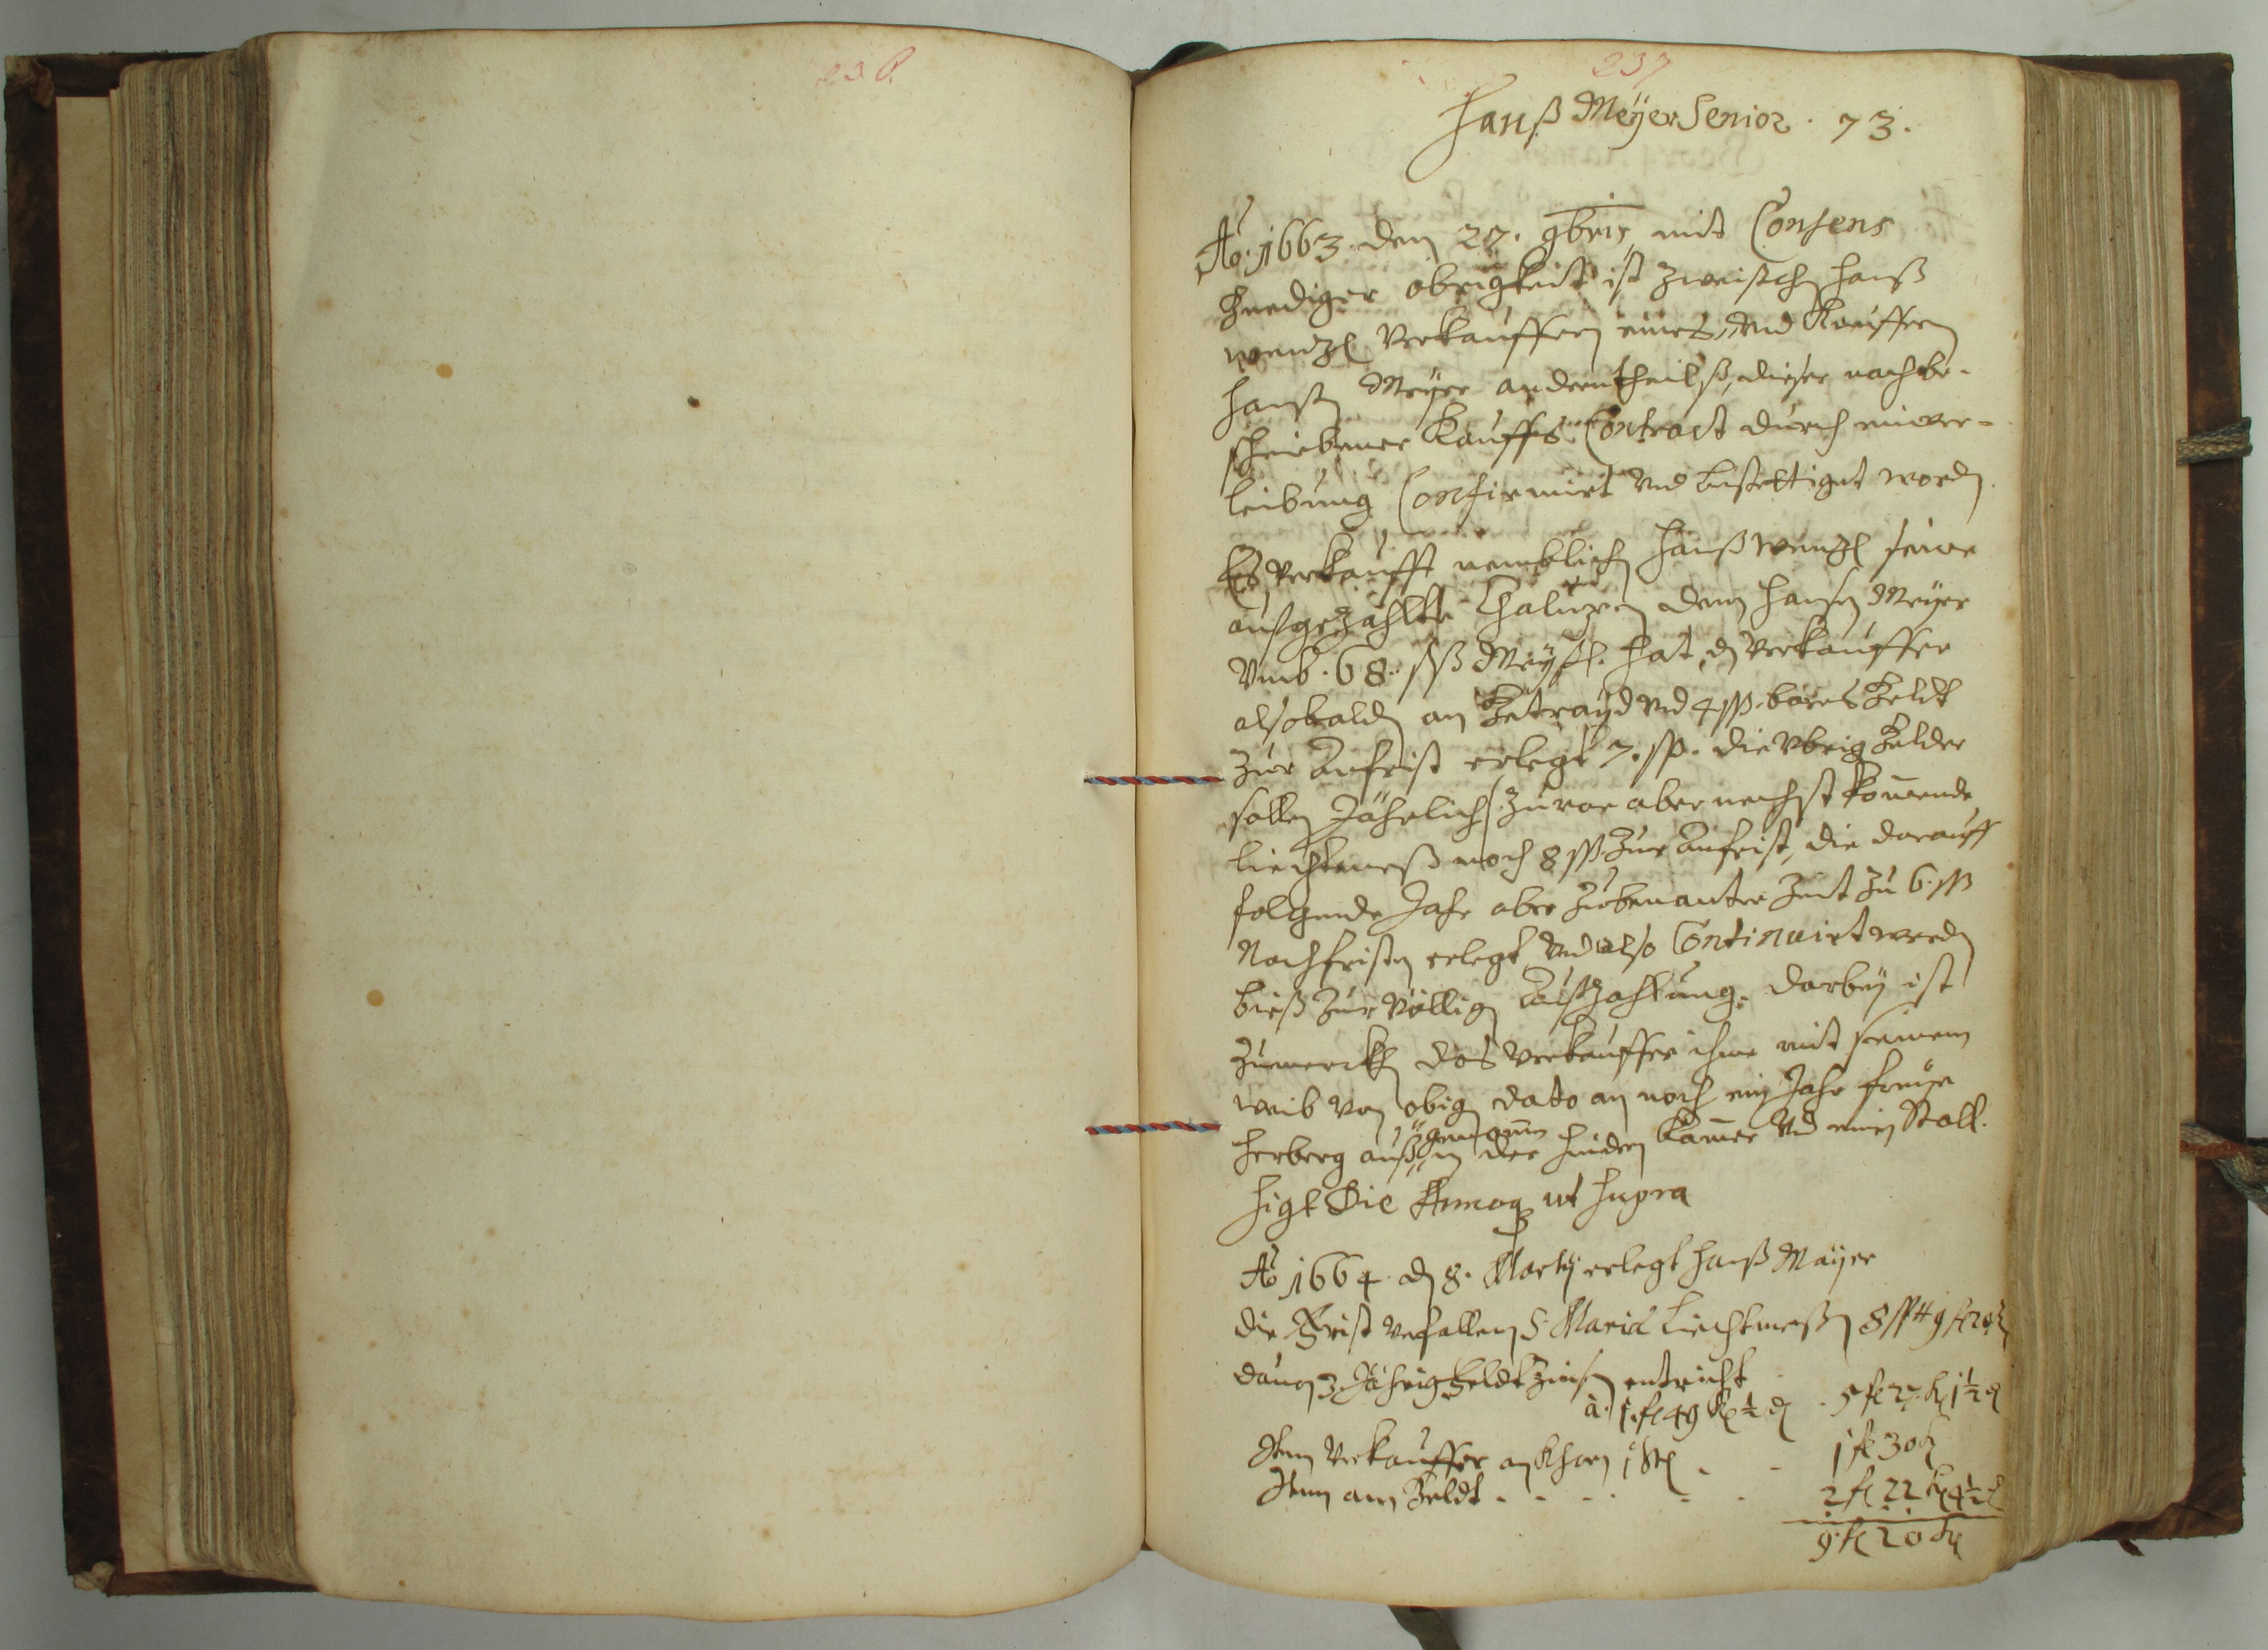 236
237
Hanß Meÿer Senior . 73.
Ao. 1663 den 27. 9bris, mit Consens
Gnediger obrigkeit ist zwischen Hanß
Wentzl Verkauffern eines, vnd Kauffern
Hansen Meÿer anderntheilß, dieser nachbe-
schriebener Kauffs Contract durch einver-
leibung Confirmirt vnd bestettiget worden.
Es verkaufft nemblichen Hanß Wentzl seine
außgezahlte Chaluppen dem Hansen Meÿer
Vmb . 68 . ßß Meÿß. hat dem Verkauffer
alsobalden an Getraÿd vnd 4 ßß. bares Geldt
zur Anfrist erlegt 7. ßß. die vbrigen Gelder
sollen Jährlichen zuvor aber nechst kommende
Liechtmeß noch 8 ßß. zur Anfrist, die darauff
folgende Jahr aber zu benanter Zeit zu 6 ßß
Nachfristen erlegt, vnd also Continuirt werden
bieß zur völligen Außzahlung. Darbeÿ ist
zumercken das Verkauffer ihme mit seinem
Weib von obigen dato an noch ein Jahr freÿe
genommen
Herberg auß in der hinderen Kammer vnd einen Stall.
Sigt Die Annoq ut Supra
Ao 1664 den 8. Martÿ erlegt Hanß Maÿer
die Frist verfallen S. Mariae Liechtmeßen 8 ßß 9 fl 20 k
dauon 3 Jährigen Geldtzinsen entricht
à. 1. fl 49 kr ½ d . 5 fl 27 kr 1½ d
Item Verkauffer an Khorn 1 Str - - 1 fl 30 k
Item am Geldt - - - - - 2 fl 22 kr 4½ d
9 fl 20 kr